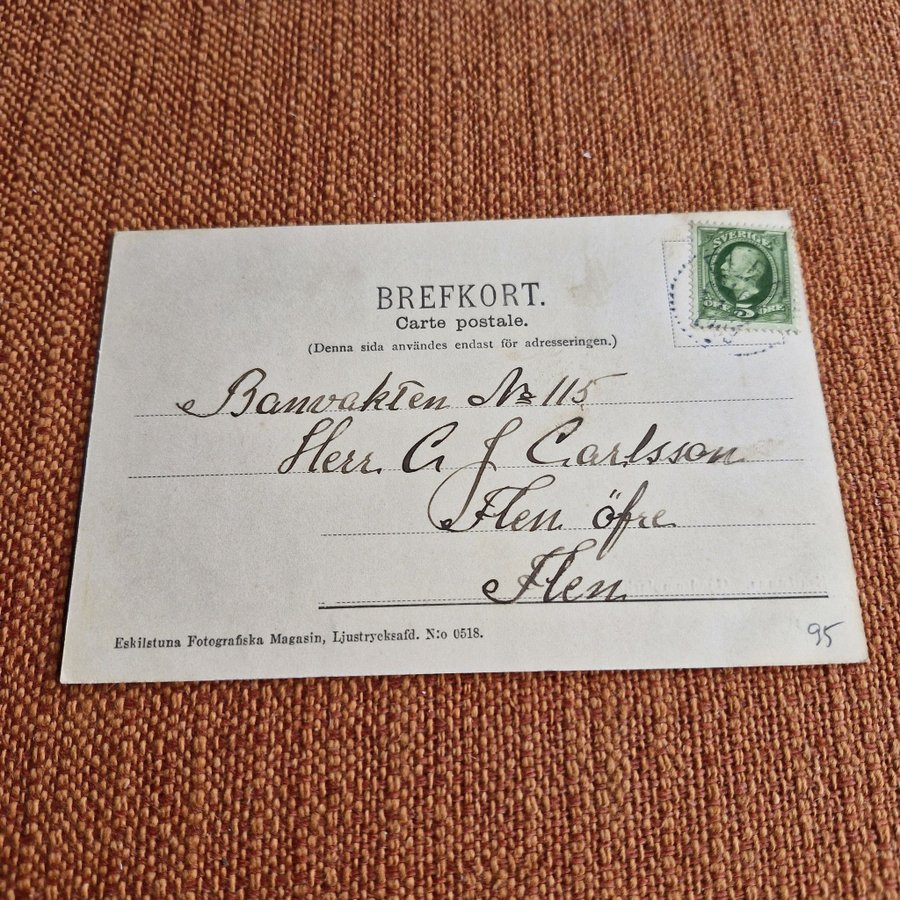 BREFKORT.
Carte postale.
(Denna sida användes endast för adresseringen.)
SVERIGE
5 ÖRE
Banvakten No 115
Herr C J Carlsson
Flen öfre
Flen
Eskilstuna Fotografiska Magasin, Ljustrycksafd. N:o 0518.
95